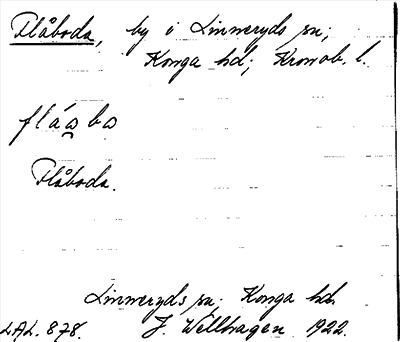 Flåboda, by i Linneryds sn,
Konga hd; Kronob. l.
flá̱ɷbɷ
Flåboda.
Linneryds sn, Konga hd.
LAL. 878. J. Wellhagen 1922.